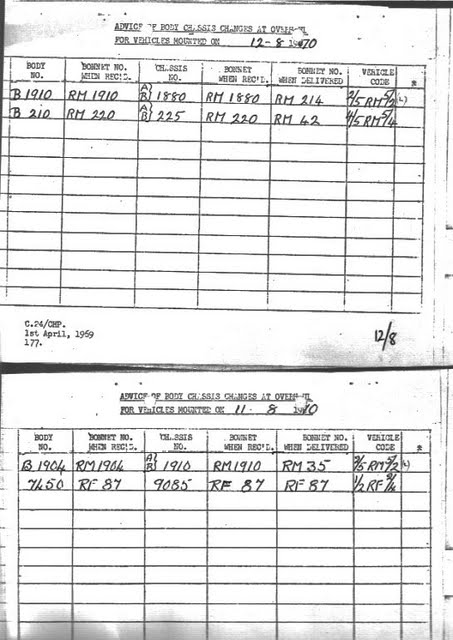 ADVICE OF BODY CHASSIS CHANGES AT OVERHAUL
FOR VEHICLES MOUNTED ON 12-8 1970
BODY NO. BONNET NO. WHEN REC'D. CHASSIS NO. BONNET WHEN REC'D. BONNET NO. WHEN DELIVERED VEHICLE CODE *
B 1910 RM 1910 A} B} 1880 RM 1880 RM 214 2/5 RM 5/2 (L)
B 210 RM 220 A} B} 225 RM 220 RM 42 4/5 RM 5/4
C.24/CHP.
1st April, 1969
177.
12/8
ADVICE OF BODY CHASSIS CHANGES AT OVERHAUL
FOR VEHICLES MOUNTED ON 11-8 1970
BODY NO. BONNET NO. WHEN REC'D. CHASSIS NO. BONNET WHEN REC'D. BONNET NO. WHEN DELIVERED VEHICLE CODE *
B 1904 RM 1904 A} B} 1910 RM 1910 RM 35 2/5 RM 5/2 (L)
7450 RF 87 9085 RF 87 RF 87 1/2 RF 2/4